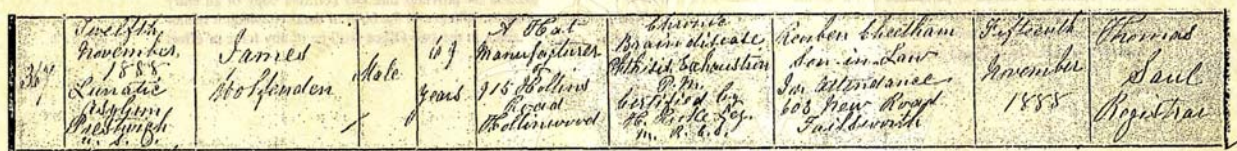 367
Twelfth
November
1888
Lunatic
Asylum
Prestwich
U. S. D.
James
Wolfenden
Male
69
years
A Hat
Manufacturer
of
915 Hollins
Road
Hollinwood
Chronic
Brain disease
Phthisis Exhaustion
P.M.
Certified by
H. Rooke Ley.
M. R. C. S.
Reuben Cheetham
Son-in-Law
In attendance
603 New Road
Failsworth
Fifteenth
November
1888
Thomas
Saul
Registrar